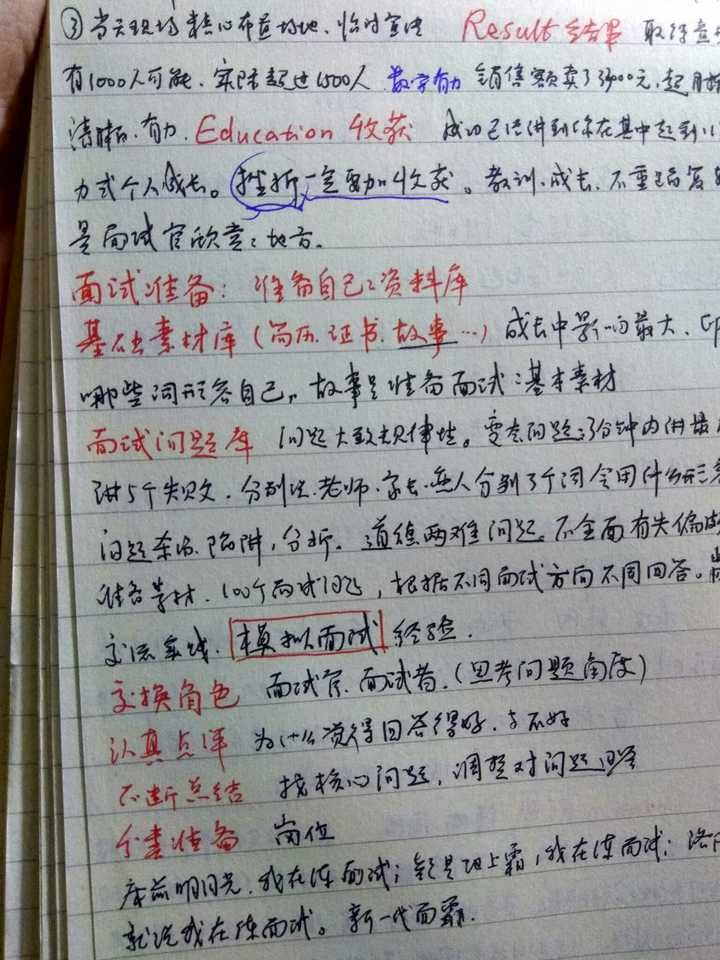 ③当天现场核心布置场地、临时宣传 Result 结果 取得
有1000人可能、实际超过1500人 数字有力 销售额卖了39000元,超
清晰、有力. Education 收获 成功已经讲到你在其中起到
方式个人成长。挫折一定要加收获。教训、成长、不重蹈覆
是面试官欣赏之地方.
面试准备: 准备自己之资料库
基础素材库(简历.证书.故事…) 成长中影响最大、
哪些词形容自己,故事是准备面试之基本素材
面试问题库 问题大致规律性。变态问题:3分钟内讲
讲5个失败.分别说.老师.家长.他人分别3个词会用什么形容
问题条 陷阱,分析。道德两难问题。不全面有失偏
准备素材.100个面试问题,根据不同面试方向不同回答。
交流实战.模拟面试 经验.
交换角色 面试官.面试者.(思考问题角度)
认真点评 为什么觉得回答得好.与不好
不断总结 找核心问题,调整对问题回答
个素准备 岗位
床前明月光,我在练面试;疑是地上霜,我在练面试;
就说我在练面试。新一代面霸.